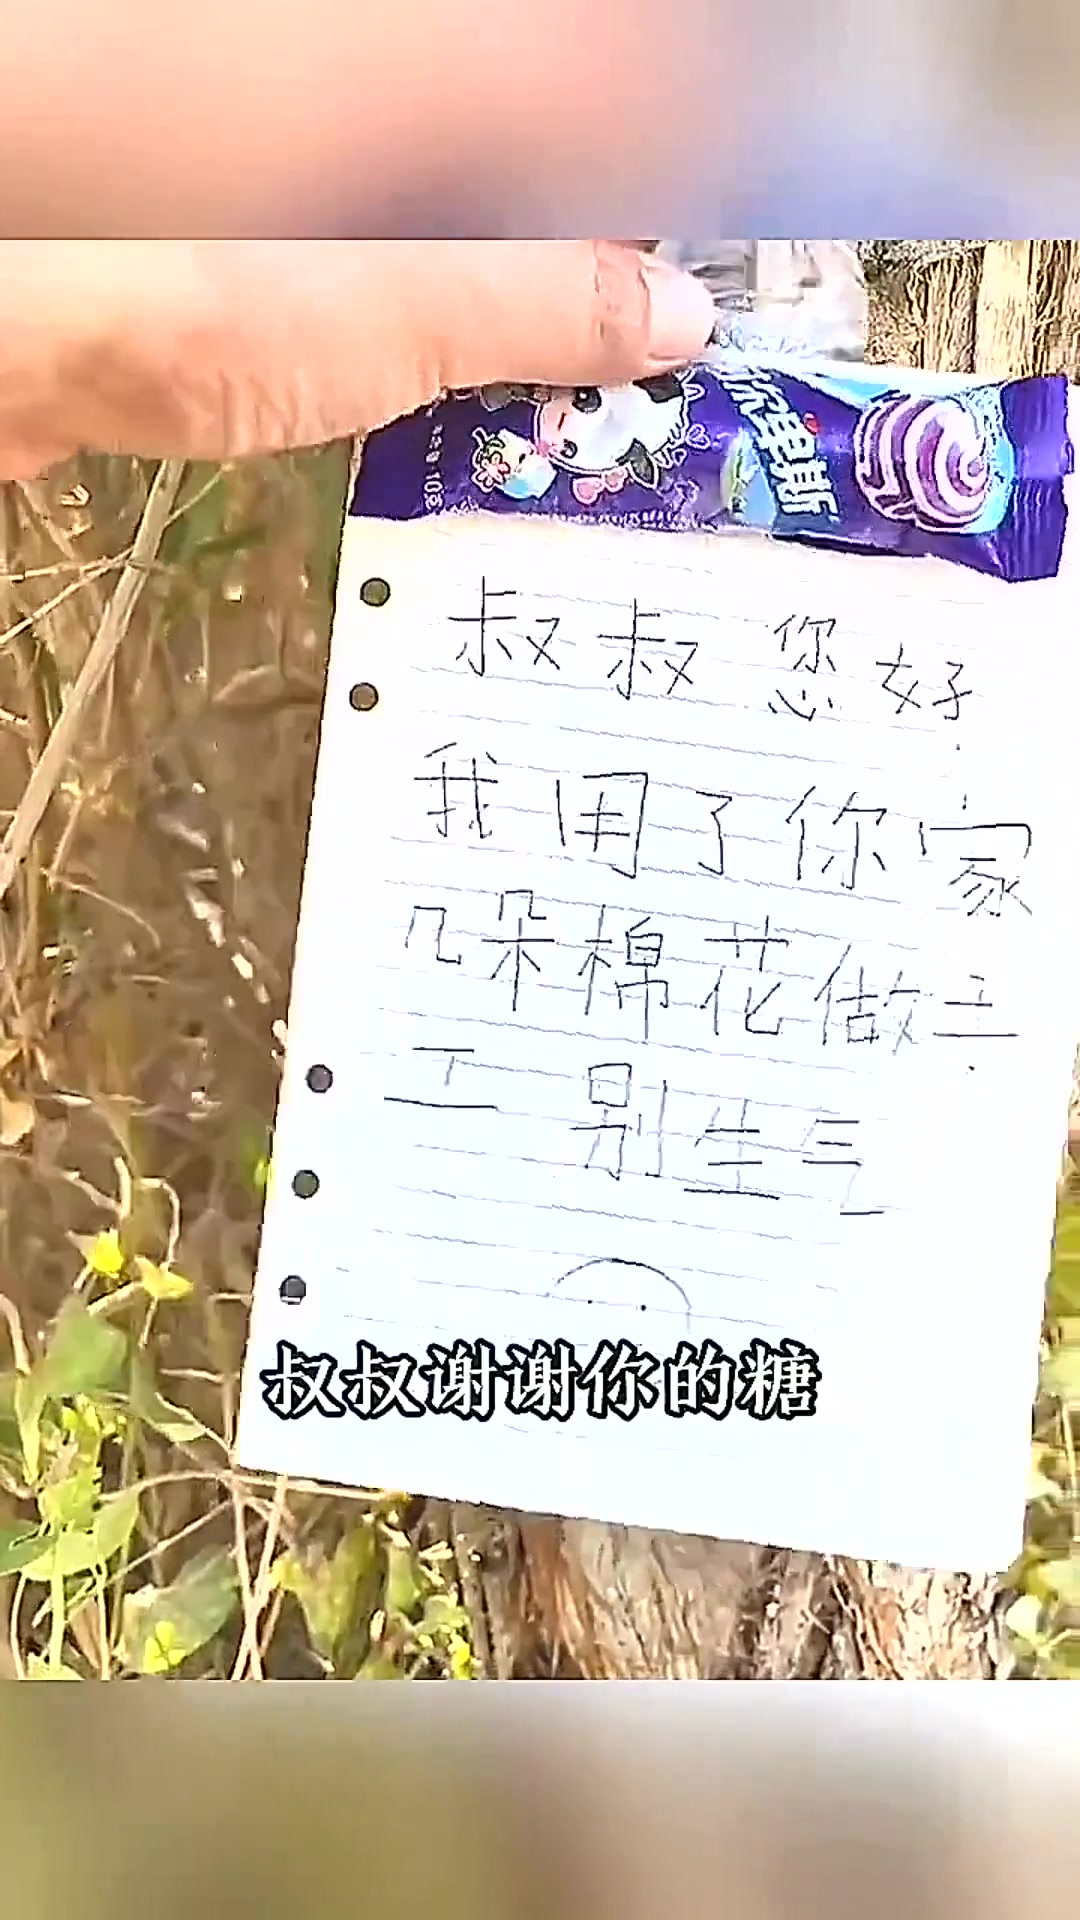 你里斯
叔叔您好
我用了你家
几朵棉花做手
工 别生气
叔叔谢谢你的糖